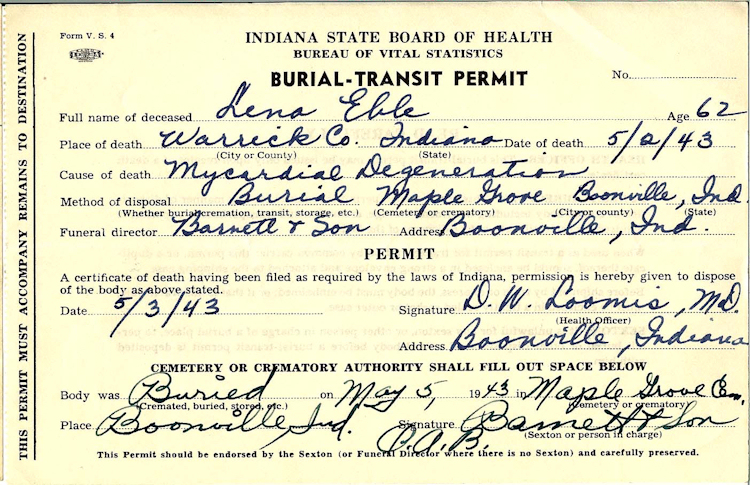 Form V. S. 4
INDIANA STATE BOARD OF HEALTH
BUREAU OF VITAL STATISTICS
BURIAL-TRANSIT PERMIT
No.
Full name of deceased Lena Eble Age 62
Place of death Warrick Co. Indiana Date of death 5/2/43
(City or County) (State)
Cause of death Mycardial Degeneration
Method of disposal Burial Maple Grove Boonville, Ind.
(Whether burial, cremation, transit, storage, etc.) (Cemetery or crematory) (City or county) (State)
Funeral director Barnett & Son Address Boonville, Ind.
PERMIT
A certificate of death having been filed as required by the laws of Indiana, permission is hereby given to dispose
of the body as above stated.
Date 5/3/43 Signature D. W. Loomis, M.D.
(Health Officer)
Address Boonville, Indiana
CEMETERY OR CREMATORY AUTHORITY SHALL FILL OUT SPACE BELOW
Body was Buried on May 5, 1943 in Maple Grove Cem.
(Cremated, buried, stored, etc.) (Cemetery or crematory)
Place Boonville, Ind. Signature Barnett & Son
(Sexton or person in charge)
This Permit should be endorsed by the Sexton (or Funeral Director where there is no Sexton) and carefully preserved.
THIS PERMIT MUST ACCOMPANY REMAINS TO DESTINATION